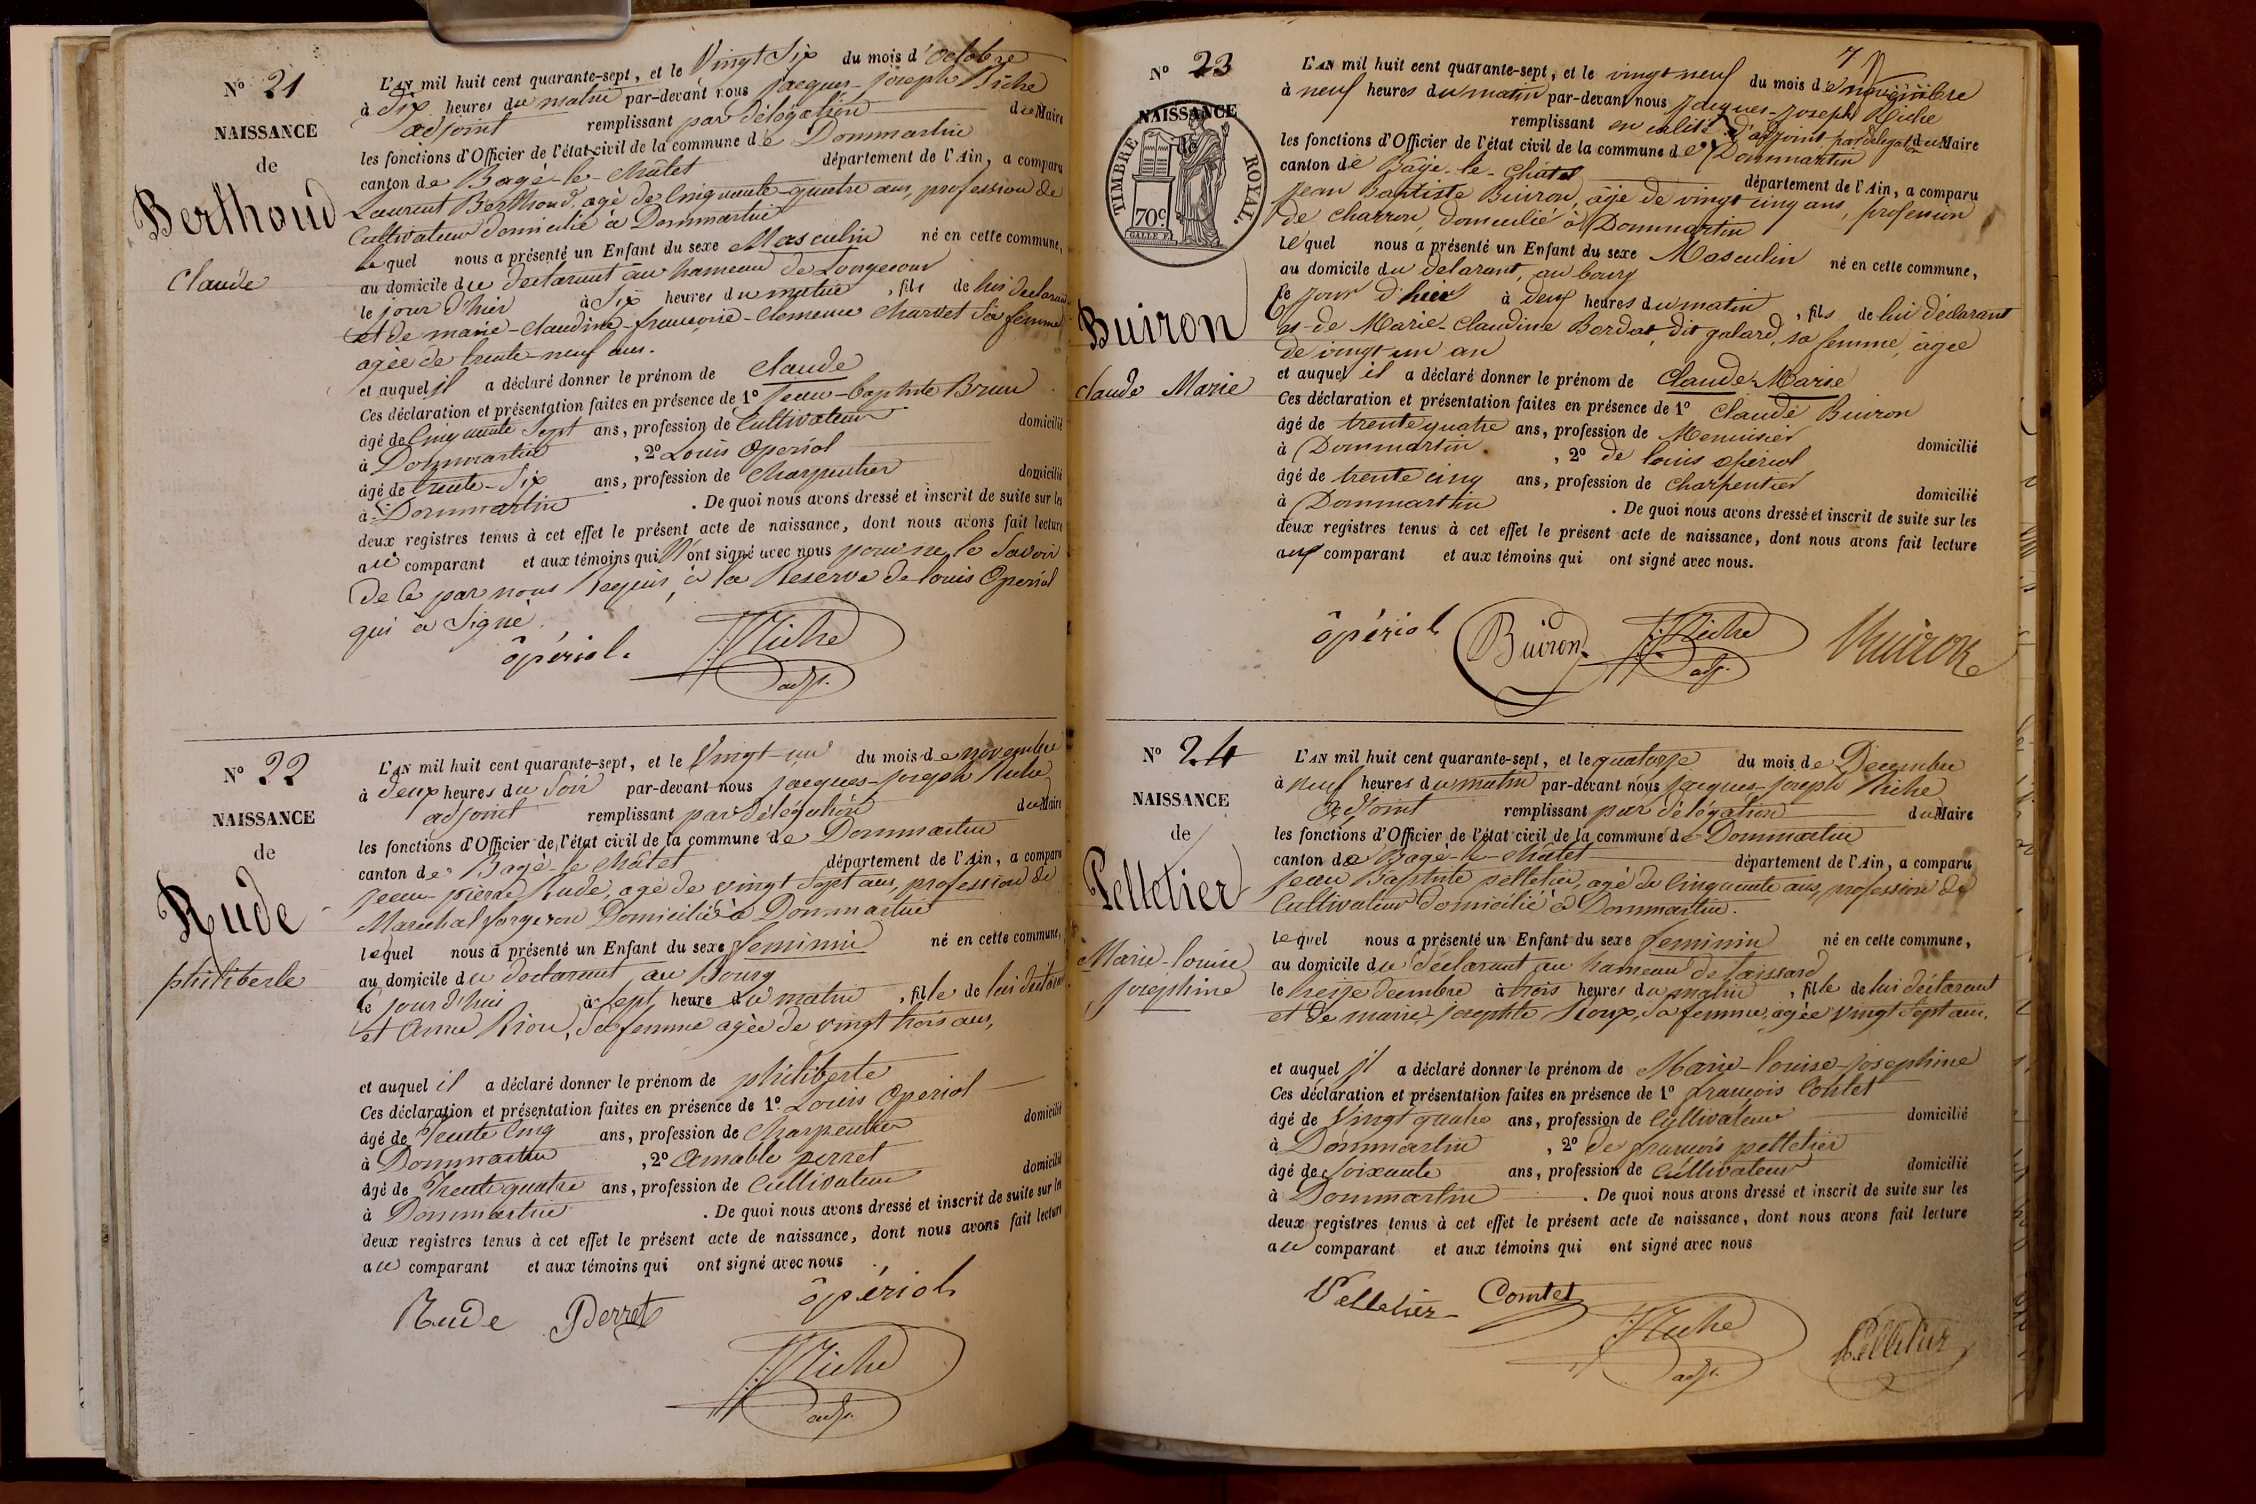 N° 21
NAISSANCE
de
Berthoud
Claude
L'AN mil huit cent quarante-sept, et le Vingt Six du mois d'octobre
à dix heures du matin par-devant nous jacques-joseph Riche
adjoint remplissant par délégation du Maire
les fonctions d'Officier de l'état civil de la commune de Dommartin
canton de Bagé-le-Châtel département de l'Ain, a comparu
Laurent Berthoud, agé de Cinquante-quatre ans, profession de
Cultivateur domicilié à Dommartin
lequel nous a présenté un Enfant du sexe Masculin né en cette commune,
au domicile du declarant au hameau de Longecour
le jour d'hier à Six heures du matin, fils de lui declarant
et de marie-claudine-francoise-clemence Charvet Sa femme
agée de trente-neuf ans.
et auquel il a déclaré donner le prénom de Claude
Ces déclaration et présentation faites en présence de 1° jean-baptiste Brun
âgé de Cinquante Sept ans, profession de Cultivateur domicilié
à Dommartin, 2° Louis Operiol
âgé de trente-Six ans, profession de Charpentier domicilié
à Dommartin. De quoi nous avons dressé et inscrit de suite sur les
deux registres tenus à cet effet le présent acte de naissance, dont nous avons fait lecture
au comparant et aux témoins qui n'ont signé avec nous pour ne le Savoir
de ce par nous Requis, à la Reserve de louis Operiol
qui a Signé.
ôpériol. J. Riche
adj.
N° 22
NAISSANCE
de
Rude
philiberte
L'AN mil huit cent quarante-sept, et le Vingt-un du mois de novembre
à deux heures du Soir par-devant nous jacques-joseph Riche
adjoint remplissant par délégation du Maire
les fonctions d'Officier de l'état civil de la commune de Dommartin
canton de Bagé-le-Châtel département de l'Ain, a comparu
jean-pierre Rude, agé de vingt Sept ans, profession de
Marechal forgeron Domicilié à Dommartin
lequel nous a présenté un Enfant du sexe feminin né en cette commune,
au domicile du declarant au Bourg
le jour d'hui à Sept heure du matin, fille de lui déclarant
et Anne Riou, Sa femme agée de vingt trois ans,
et auquel il a déclaré donner le prénom de philiberte
Ces déclaration et présentation faites en présence de 1° Louis Operiol
âgé de Trente Cinq ans, profession de Charpentier domicilié
à Dommartin, 2° Amable perret
âgé de Trente quatre ans, profession de Cultivateur domicilié
à Dommartin. De quoi nous avons dressé et inscrit de suite sur les
deux registres tenus à cet effet le présent acte de naissance, dont nous avons fait lecture
au comparant et aux témoins qui ont signé avec nous
Rude Perret ôpériol
J. Riche
adj.
7
N° 23
NAISSANCE
de
TIMBRE ROYAL.
70c
Buiron
Claude Marie
L'AN mil huit cent quarante-sept, et le vingt neuf du mois de novembre
à neuf heures du matin par-devant nous jacques-joseph Riche
remplissant en calité d'adjoint par délegat.on du Maire
les fonctions d'Officier de l'état civil de la commune de Dommartin
canton de Bâgé-le-Châtel département de l'Ain, a comparu
jean Baptiste Buiron, âgé de vingt cinq ans, profession
de charron, domicilié à Dommartin
lequel nous a présenté un Enfant du sexe Masculin né en cette commune,
au domicile du delarant, au bourg
le jour d'hier à deux heures du matin, fils de lui déclarant
et de Marie-Claudine Bordat, dit galard, sa femme, âgée
de vingt un an
et auquel il a déclaré donner le prénom de Claude Marie
Ces déclaration et présentation faites en présence de 1° Claude Buiron
âgé de trente quatre ans, profession de Menuisier domicilié
à Dommartin, 2° de louis opériol
âgé de trente cinq ans, profession de Charpentier domicilié
à Dommartin. De quoi nous avons dressé et inscrit de suite sur les
deux registres tenus à cet effet le présent acte de naissance, dont nous avons fait lecture
aux comparant et aux témoins qui ont signé avec nous.
ôpériol Buiron J. Riche Buiron
adj.
N° 24
NAISSANCE
de
Pelletier
Marie-louise
josephine
L'AN mil huit cent quarante-sept, et le quatorze du mois de Decembre
à neuf heures du matin par-devant nous jacques-joseph Riche
Adjoint remplissant par délégation du Maire
les fonctions d'Officier de l'état civil de la commune de Dommartin
canton de Bagé-le-Châtel département de l'Ain, a comparu
jean Baptiste pelletier, agé de Cinquante ans, profession de
Cultivateur domicilié à Dommartin.
lequel nous a présenté un Enfant du sexe feminin né en cette commune,
au domicile du déclarant au hameau de laissard
le treize decembre à trois heures du matin, fille de lui déclarant
et de marie josephte Roux, Sa femme, agée vingt Sept ans.
et auquel il a déclaré donner le prénom de Marie-louise-josephine
Ces déclaration et présentation faites en présence de 1° francois Contet
âgé de Vingt quatre ans, profession de Cultivateur domicilié
à Dommartin, 2° de francois pelletier
âgé de Soixante ans, profession de Cultivateur domicilié
à Dommartin. De quoi nous avons dressé et inscrit de suite sur les
deux registres tenus à cet effet le présent acte de naissance, dont nous avons fait lecture
au comparant et aux témoins qui ont signé avec nous
Pelletier Comtet
J. Riche Pelletier
adj.